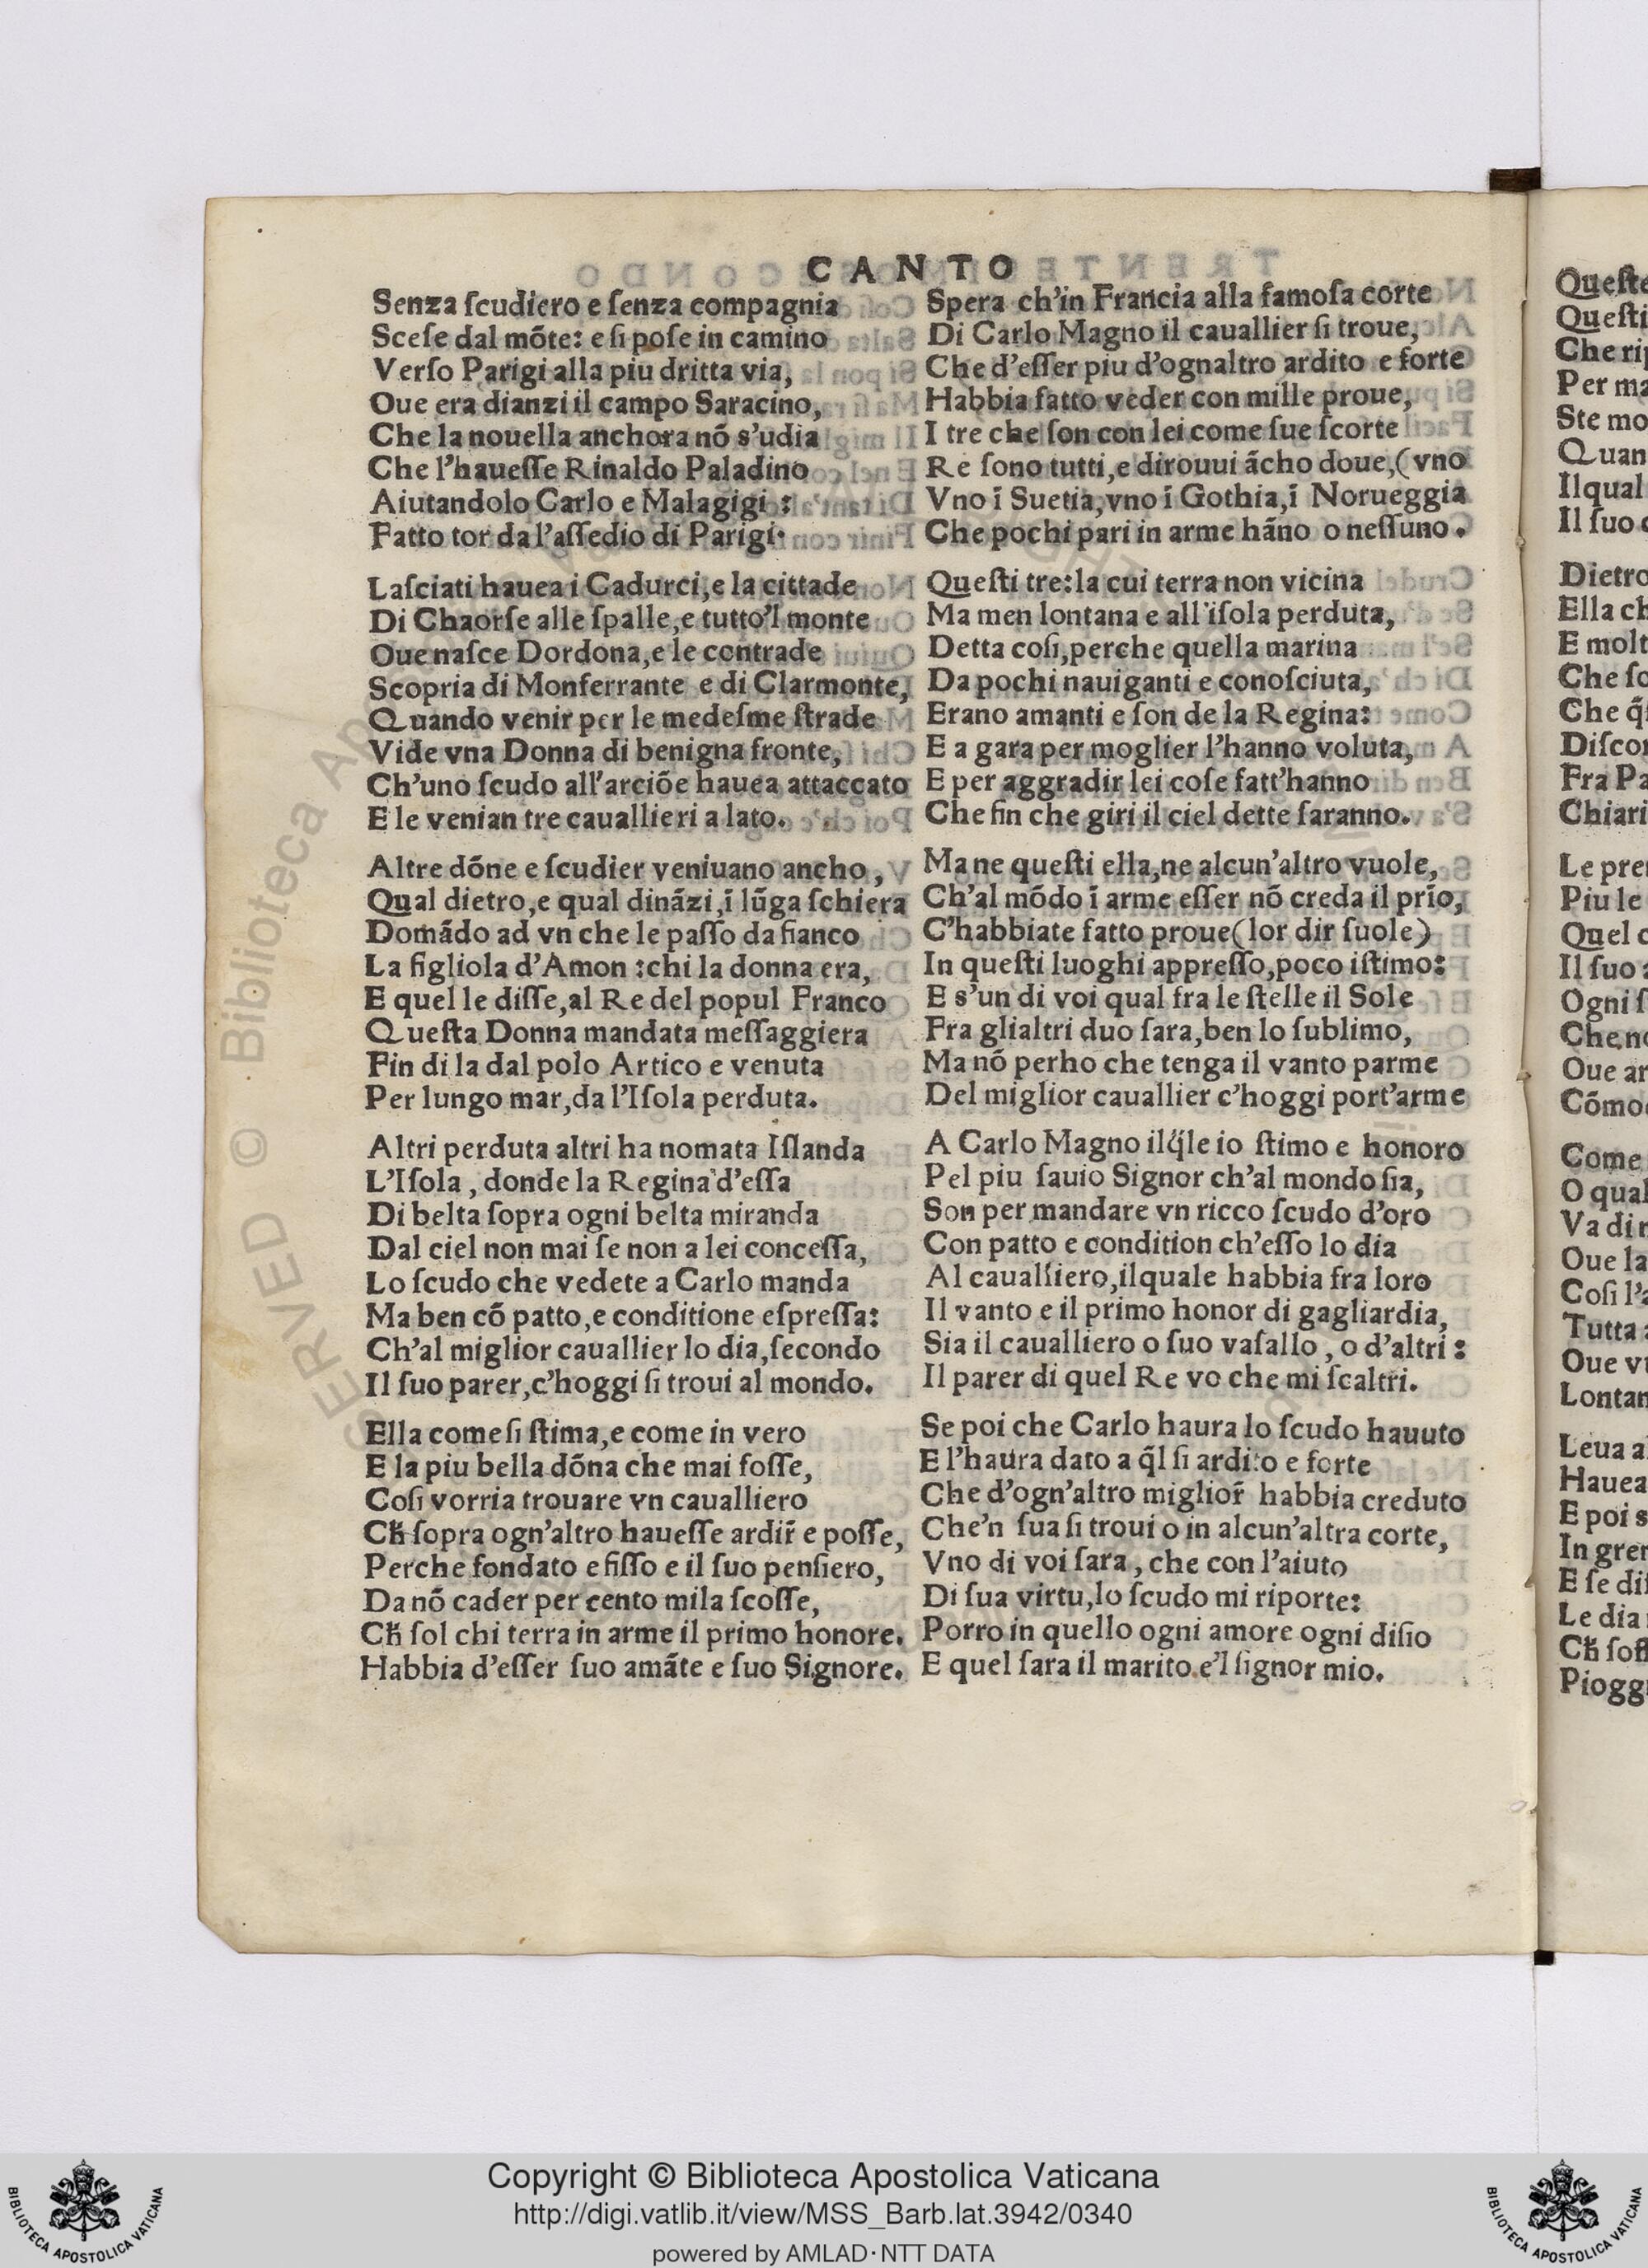 CANTO
Senza ſcudiero e ſenza compagnia
Sceſe dal mõte: e ſi poſe in camino
Verſo Parigi alla piu dritta via,
Oue era dianzi il campo Saracino,
Che la nouella anchora nõ s'udia
Che l'haueſſe Rinaldo Paladino
Aiutandolo Carlo e Malagigi:
Fatto tor da l'aſſedio di Parigi.
Laſciati hauea i Cadurci, e la cittade
Di Chaorſe alle ſpalle, e tutto'l monte
Oue naſce Dordona, e le contrade
Scopria di Monferrante e di Clarmonte,
Quando venir per le medeſme ſtrade
Vide vna Donna di benigna fronte,
Ch'uno ſcudo all'arciõe hauea attaccato
E le venian tre cauallieri a lato.
Altre dõne e ſcudier veniuano ancho,
Qual dietro, e qual dinãzi, ĩ lũga ſchiera
Domãdo ad vn che le paſſo da fianco
La figliola d'Amon: chi la donna era,
E quel le diſſe, al Re del popul Franco
Queſta Donna mandata meſſaggiera
Fin di la dal polo Artico e venuta
Per lungo mar, da l'Iſola perduta.
Altri perduta altri ha nomata Iſlanda
L'Iſola, donde la Regina d'eſſa
Di belta ſopra ogni belta miranda
Dal ciel non mai ſe non a lei conceſſa,
Lo ſcudo che vedete a Carlo manda
Ma ben cõ patto, e conditione eſpreſſa:
Ch'al miglior cauallier lo dia, ſecondo
Il ſuo parer, c'hoggi ſi troui al mondo.
Ella come ſi ſtima, e come in vero
E la piu bella dõna che mai foſſe,
Coſi vorria trouare vn caualliero
Cħ ſopra ogn'altro haueſſe ardir̃ e poſſe,
Perche fondato e fiſſo e il ſuo penſiero,
Da nõ cader per cento mila ſcoſſe,
Cħ ſol chi terra in arme il primo honore.
Habbia d'eſſer ſuo amãte e ſuo Signore.
Spera ch'in Francia alla famoſa corte
Di Carlo Magno il cauallier ſi troue,
Che d'eſſer piu d'ognaltro ardito e forte
Habbia fatto veder con mille proue,
I tre che ſon con lei come ſue ſcorte
Re ſono tutti, e dirouui ãcho doue, (vno
Vno ĩ Suetia, vno ĩ Gothia, ĩ Norueggia
Che pochi pari in arme hãno o neſſuno.
Queſti tre: la cui terra non vicina
Ma men lontana e all'iſola perduta,
Detta coſi, perche quella marina
Da pochi nauiganti e conoſciuta,
Erano amanti e ſon de la Regina:
E a gara per moglier l'hanno voluta,
E per aggradir lei coſe fatt'hanno
Che fin che giri il ciel dette ſaranno.
Ma ne queſti ella, ne alcun'altro vuole,
Ch'al mõdo ĩ arme eſſer nõ creda il prĩo,
C'habbiate fatto proue (lor dir ſuole)
In queſti luoghi appreſſo, poco iſtimo:
E s'un di voi qual fra le ſtelle il Sole
Fra glialtri duo ſara, ben lo ſublimo,
Ma nõ perho che tenga il vanto parme
Del miglior cauallier c'hoggi port'arme
A Carlo Magno ilq̃le io ſtimo e honoro
Pel piu ſauio Signor ch'al mondo ſia,
Son per mandare vn ricco ſcudo d'oro
Con patto e condition ch'eſſo lo dia
Al caualliero, ilquale habbia fra loro
Il vanto e il primo honor di gagliardia,
Sia il caualliero o ſuo vaſallo, o d'altri:
Il parer di quel Re vo che mi ſcaltri.
Se poi che Carlo haura lo ſcudo hauuto
E l'haura dato a q̃l ſi ardito e forte
Che d'ogn'altro miglior̃ habbia creduto
Che'n ſua ſi troui o in alcun'altra corte,
Vno di voi ſara, che con l'aiuto
Di ſua virtu, lo ſcudo mi riporte:
Porro in quello ogni amore ogni diſio
E quel ſara il marito e'l ſignor mio.
Copyright © Biblioteca Apostolica Vaticana
http://digi.vatlib.it/view/MSS_Barb.lat.3942/0340
powered by AMLAD·NTT DATA
BIBLIOTECA APOSTOLICA VATICANA
BIBLIOTECA APOSTOLICA VATICANA